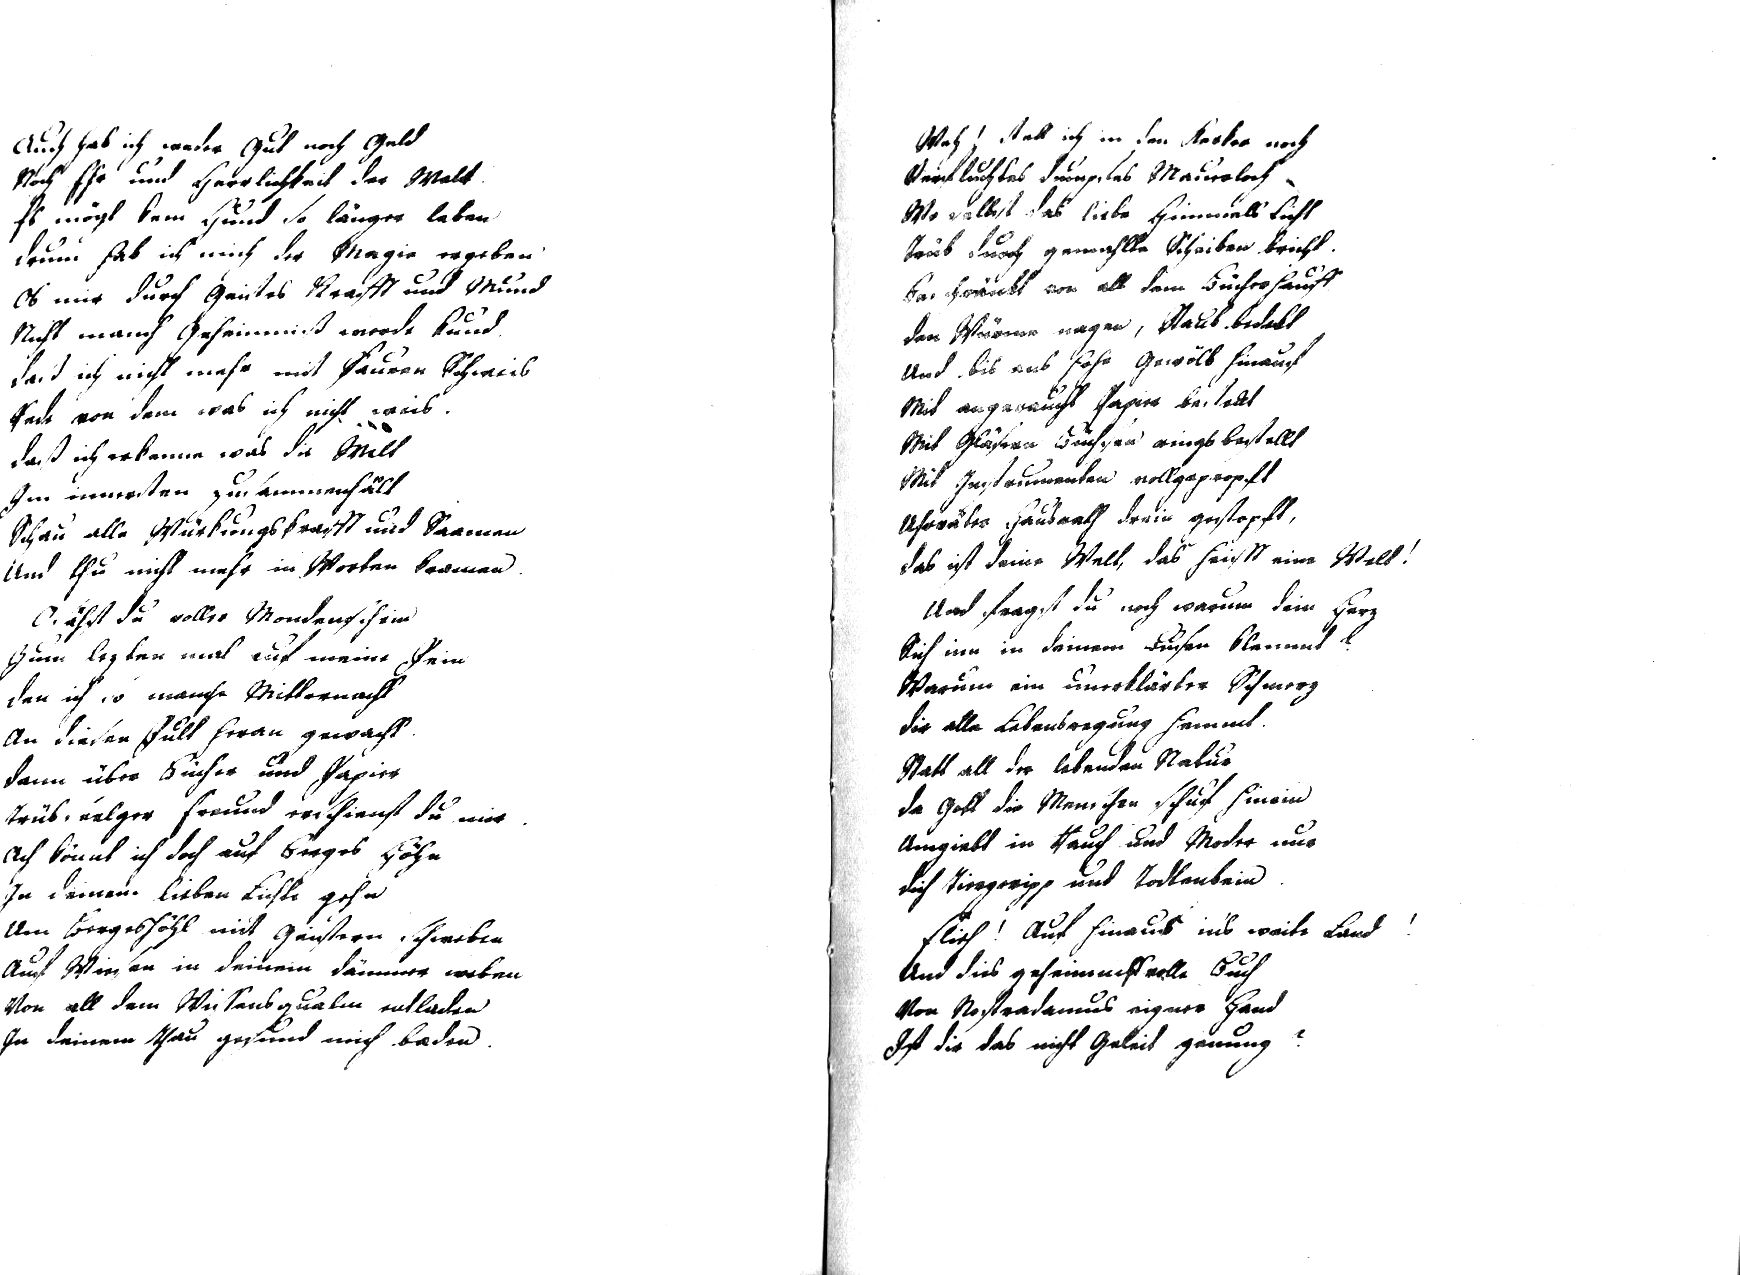 Auch hab ich weder Gut noch Geld
Noch Ehr und Herrlichkeit der Welt.
Es mögt kein Hund so länger leben
Drum hab ich mich der Magie ergeben
Ob mir durch Geistes Krafft und Mund
Nicht manch Geheimniß werde kund.
Daß ich nicht mehr mit sauren Schweis
Rede von dem was ich nicht weis.
Daß ich erkenne was die Welt
Im innersten zusammenhält
Schau alle Würkungskrafft und Saamen
Und thu nicht mehr in Worten kramen.
O sähst du voller Mondenschein
Zum letzten mal auf meine Pein
Den ich so manche Mitternacht
An diesen Pult heran gewacht.
Dann über Bücher und Papier
Trübseelger Freund erschienst du mir.
Ach könnt ich doch auf Berges Höhn
In deinem lieben Lichte gehn
Um Bergeshöhl mit Geistern schweben
Auf Wiesen in deinem Dämmer weben
Von all dem Wissensqualm entladen
In deinem Thau gesund mich baden.
Weh! steck ich in den Kerker noch
Verfluchtes dumpfes Mauerloch
Wo selbst das liebe Himmels Licht
Trüb durch gemahlte Scheiben bricht.
Beschränckt von all dem Bücherhauff
Den Würme nagen, Staub bedeckt
Und bis ans hohe Gewölb hinauf
Mit angeraucht Papier besteckt
Mit Gläsern Büchsen rings bestellt
Mit Instrumenten vollgepropft
Uhrväter Hausrath drein gestopft,
Das ist deine Welt, das heisst eine Welt!
Und fragst du noch warum dein Herz
Sich inn in deinem Busen klemmt?
Warum ein unerklärter Schmerz
Dir alle Lebensregung hemmt.
Statt all der lebenden Natur
Da Gott die Menschen schuf hinein
Umgiebt in Rauch und Moder nur
Dich Tiergeripp und Todtenbein.
Flieh! Auf hinaus in's weite Land!
Und dies geheimnissvolle Buch
Von Nostradamus eigner Hand
Ist dir das nicht Geleit genung?